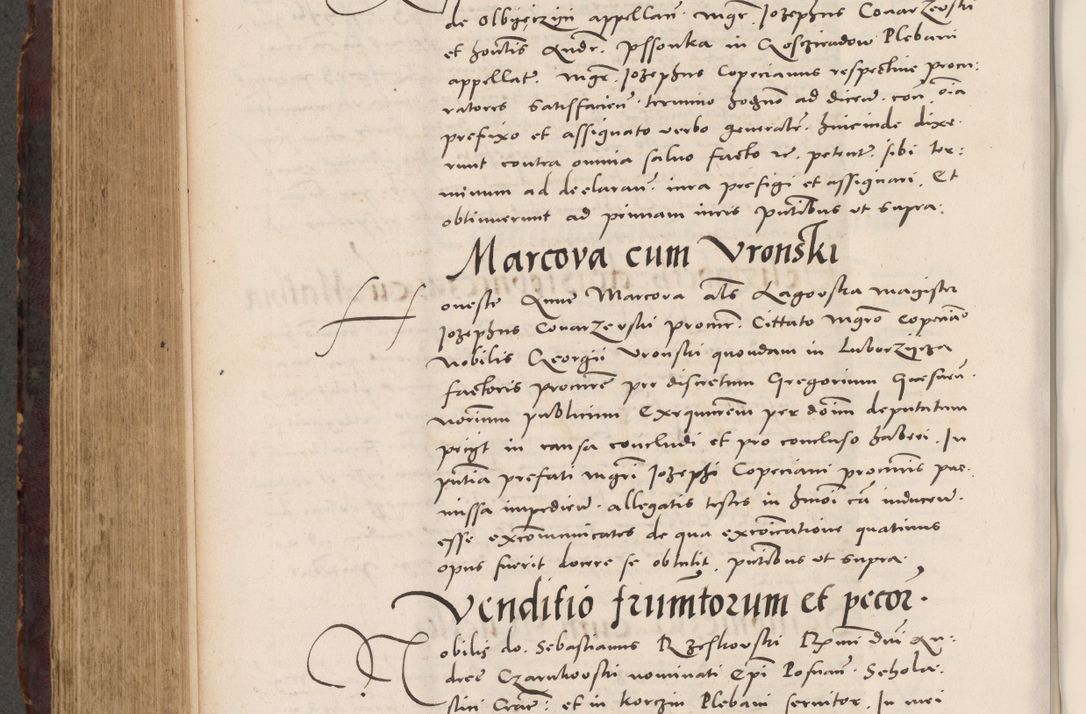 de Olbyęczyn appellan. mgr. Jozephus Conarzewski
et honestis Andr. Pssonka in Plebani
appellat. mgr. Jozephus Copecianus respective procu:
ratores satisfacien. termino hodierno ad dicen. con. oia
prefixo et assignato verbo generalr. hincinde dixe.
runt contra omnia salvo facto re. petent. sibi ter:
minum ad declaran. iura prefigi et assignari. Et
obtinuerunt ad primam iuris putibus ut supra.
Marcova cum Vronski
oneste Anne Marcova als Lagovska magistr
Jozephus Conarzewski procur. Cittato mgro Copeciano
Nobilis Georgii Vronski quondam in Luborzycza
factoris procure per discretum Gregorium
norium publicum Exequutorem per dom deputatum
petiit in causa concludi et pro concluso haberi. In
putia prefati mgri Jozephi Copeciani procuris pre.
missa impedien. allegatis testes in hmoi ca inducen.
esse excommunicates de qua excoicatione quatinus
opus fuerit docere se obtulit. putibus ut supra.
Venditio frumtorum et pecor.
obilis do. Sebastianus Rzeskowski Rmi dni An:
dree Czarnkovski nominati Epi Posnan. Schola.
stici Crac. et in Korczin Plebani servitor. In mei